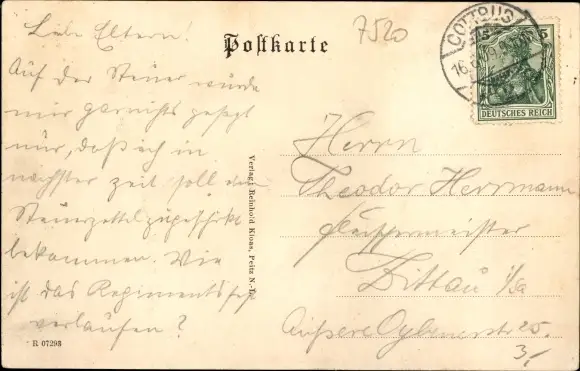 Liebe Eltern!
Auf der Steuer wurde
mir garnichts gesagt
nur, daß ich in
nächster Zeit soll den
Steuerzettel zugeschickt
bekommen. Wie
ist das Regimentsfest
verlaufen?
R 07293
Postkarte
7520
Verlag: Reinhold Kloas, Peitz N.-L.
COTTBUS
16.
5
DEUTSCHES REICH
Herrn
Theodor Herrmann
Fleischermeister
Zittau i/Sa
Äußere Oybinerstr 25.
3,-